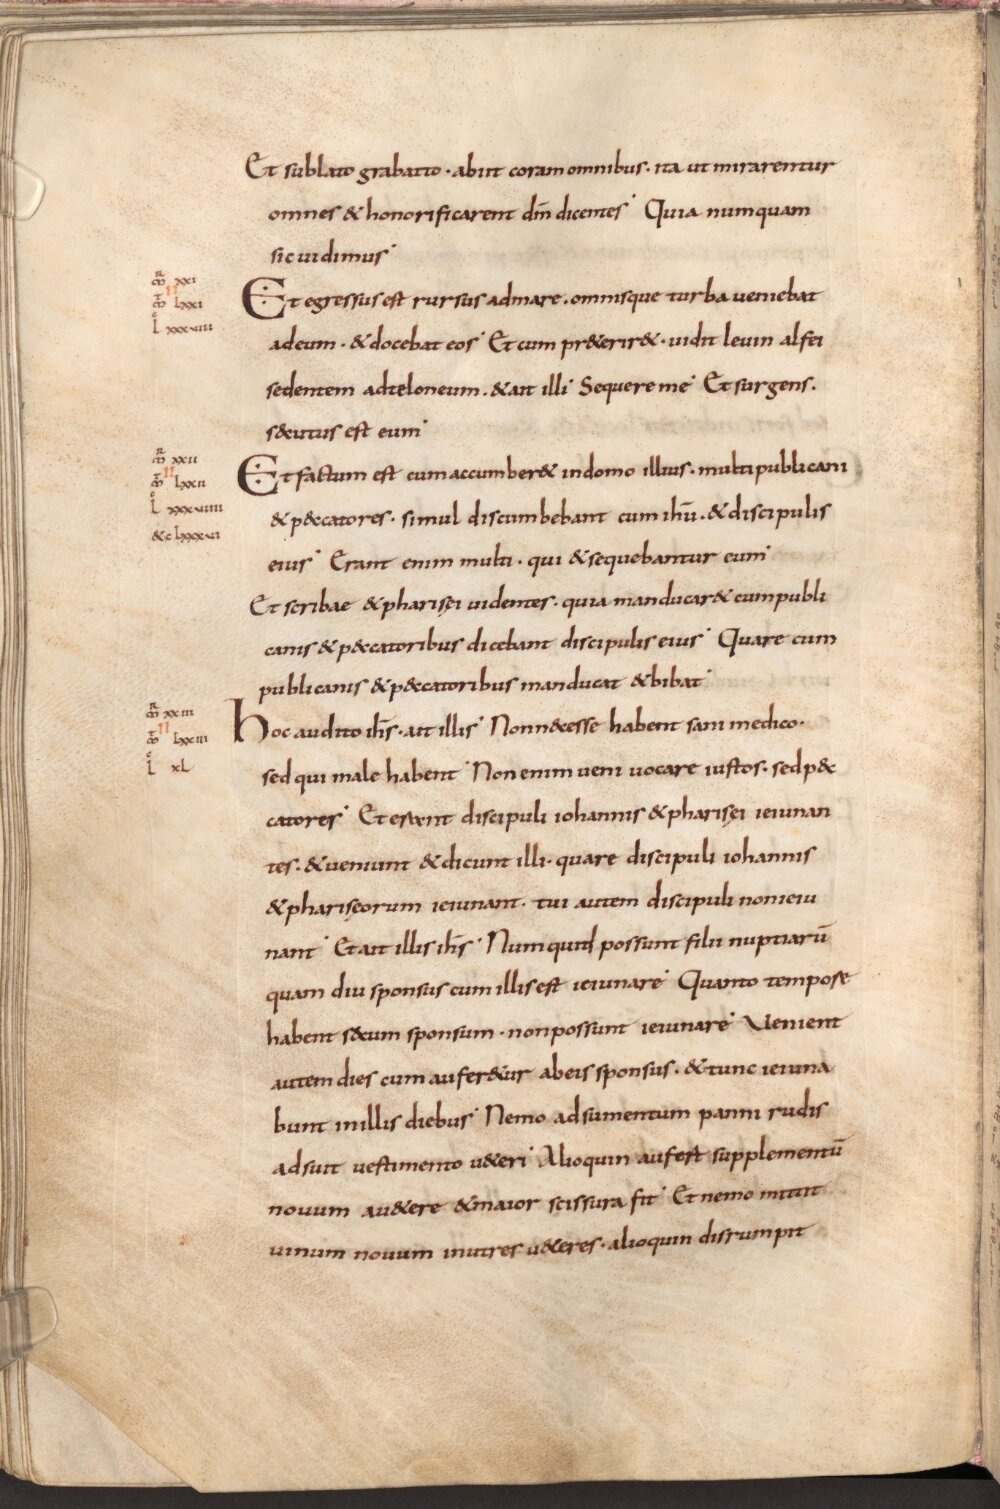 Et sublato grabatto · abiit coram omnibus · ita ut mirarentur
omnes & honorificarent dm̄ dicentes Quia numquam
sic uidimus
mr xxi
mt lxxi
II
l xxxuiii
Et egressus est rursus admare · omnisque turba ueniebat
adeum · & docebat eos Et cum pr&erir& · uidit leuin alfei
sedentem adteloneum · & ait illi Sequere me Et surgens ·
s&cutus est eum
mr xxii
mt lxxii
II
l xxxuiiii
Et factum est cum accumber& indomo illius · multi publicani
& p&ccatores · simul discumbebant cum ihū · & discipulis
eius Erant enim multi · qui & sequebantur eum
Et scribae & pharisęi uidentes · quia manducar& cum publi
canis & p&ccatoribus dicebant discipulis eius Quare cum
publicanis & p&ccatoribus manducat & bibat
mr xxiii
mt lxxiii
II
l xl
Hoc audito ihs̄ · ait illis Non n&cesse habent sani medico ·
sed qui male habent Non enim ueni uocare iustos · sed p&c
catores Et erant discipuli iohannis & pharisęi ieiunan
tes · & ueniunt & dicunt illi · quare discipuli iohannis
& pharisęorum ieiunant · tui autem discipuli non ieiu
nant Et ait illis ihs̄ Numquid possunt filii nuptiarū
quam diu sponsus cum illis est ieiunare Quanto tempore
habent s&cum sponsum · non possunt ieiunare Uenient
autem dies cum aufer&ur abeis sponsus · & tunc ieiuna
bunt inillis diebus Nemo adsumentum panni rudis
adsuit uestimento u&eri Alioquin aufert supplementū
nouum au&ere & maior scissura fit Et nemo mittit
uinum nouum inutres u&eres · alioquin disrumpit